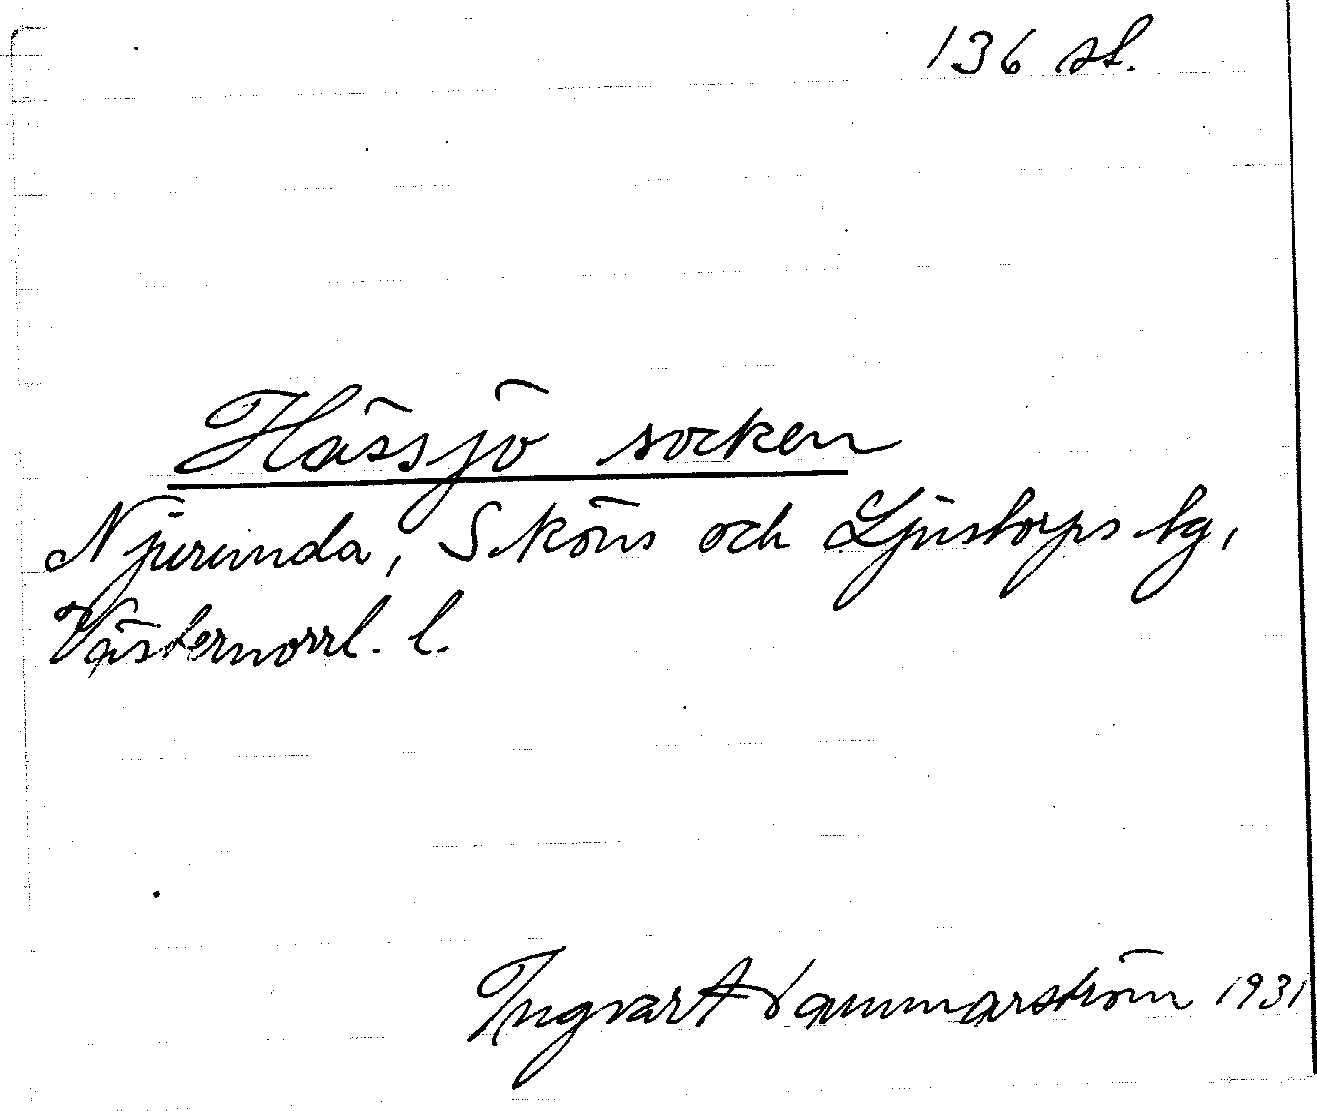 136 st.
Hässjö socken
Njurunda, Sköns och Ljustorps tg,
Västernorrl. l.
Ingvar Hammarström 1931